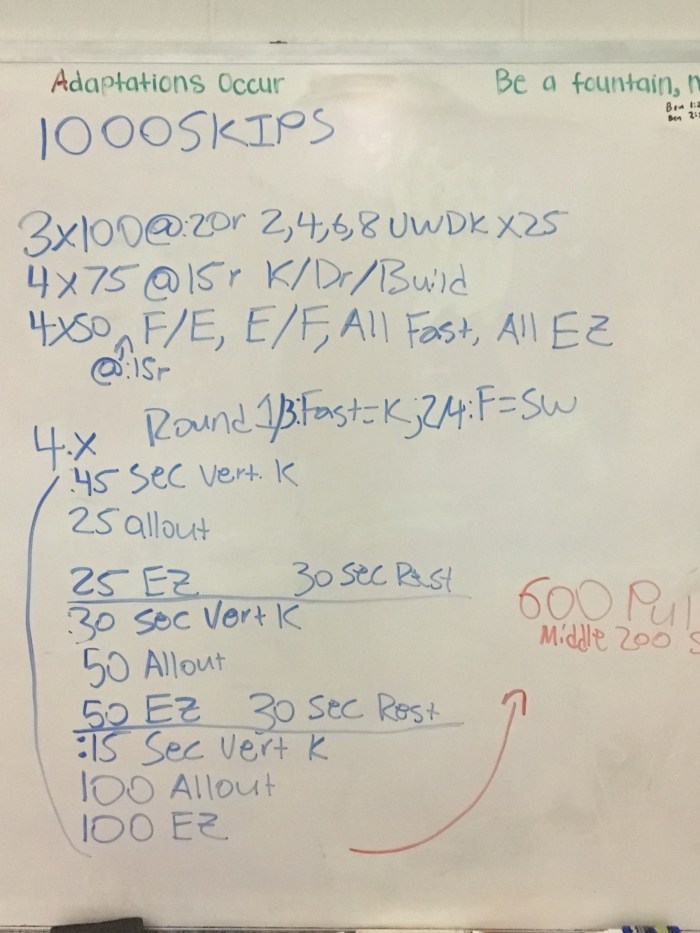 Adaptations Occur
Be a fountain, n
1000 SKIPS
3x100@:20r 2,4,6,8 UWDK x25
4x75 @15r K/Dr/Build
4x50 F/E, E/F, All Fast, All EZ
@:15r
Round 1/3:Fast=K;2/4:F=SW
4.x
:45 Sec Vert. K
25 allout
25 EZ 30 Sec Rest
:30 Sec Vert K
50 Allout
50 EZ 30 Sec Rest
:15 Sec Vert K
100 Allout
100 EZ
600 Pul
Middle 200 S